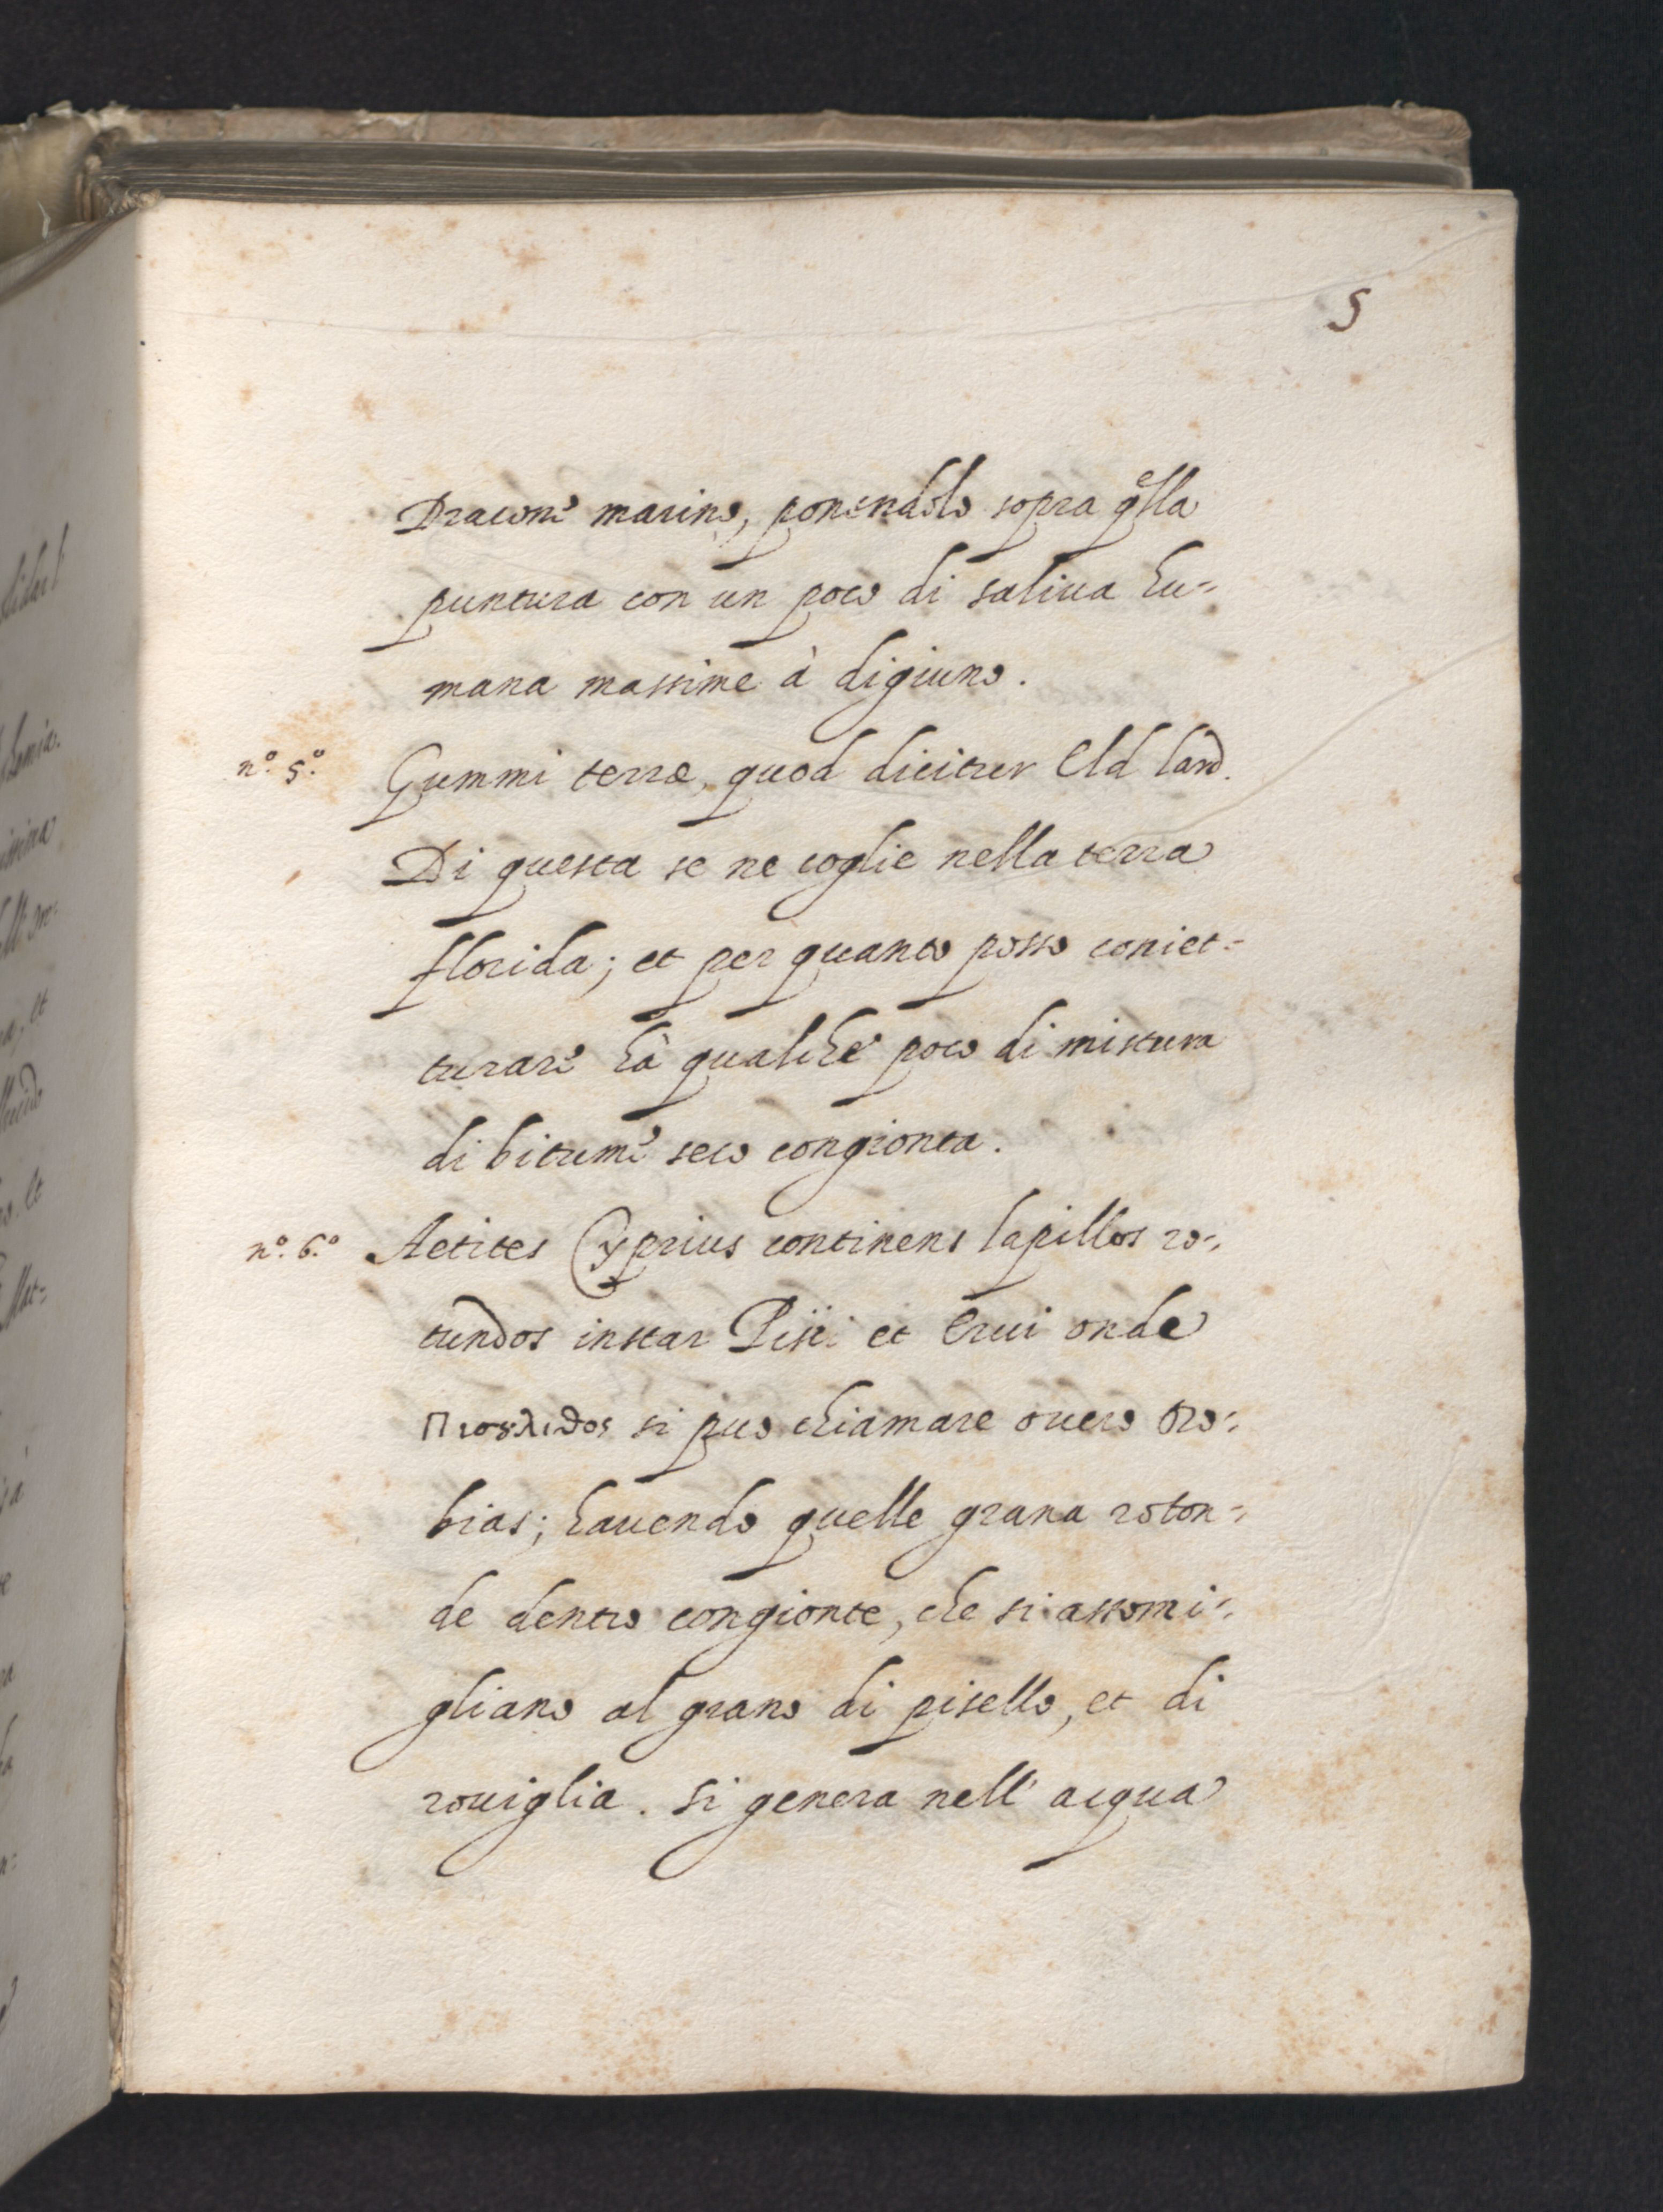 5
Dracone marino, ponendolo sopra q̃lla
puntura con un poco di saliua hu=
mana massime à digiuno.
n.º 5.º Gummi terræ, quod dicitur Eld land.
Di questa se ne coglie nella terra
florida; et per quanto posso coniet=
turare hà qualche poco di mistura
di bitume seco congionta.
n.º 6.º Aetites Cyprius continens lapillos ro=
tundos instar Pisi et Erui onde
Πισȣλιθος si puo chiamare ouero Oro=
bias; hauendo quelle grana roton=
de dentro congionte, che si assomi=
gliano al grano di pisello, et di
rouiglia. Si genera nell' acqua